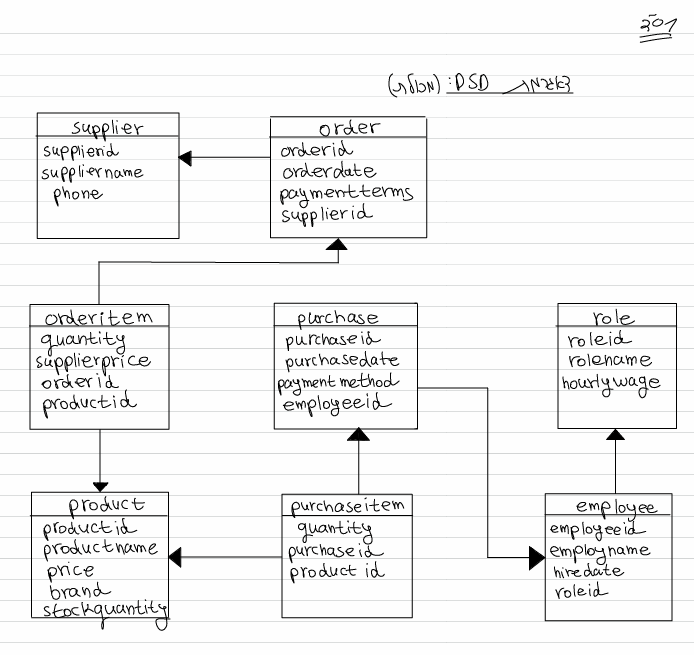 DSD
supplier
supplierid
suppliername
phone
order
orderid
orderdate
paymentterms
supplierid
orderitem
quantity
supplierprice
orderid
productid
purchase
purchaseid
purchasedate
payment method
employeeid
role
roleid
rolename
hourlywage
product
productid
productname
price
brand
stockquantity
purchaseitem
quantity
purchaseid
product id
employee
employeeid
employname
hiredate
roleid